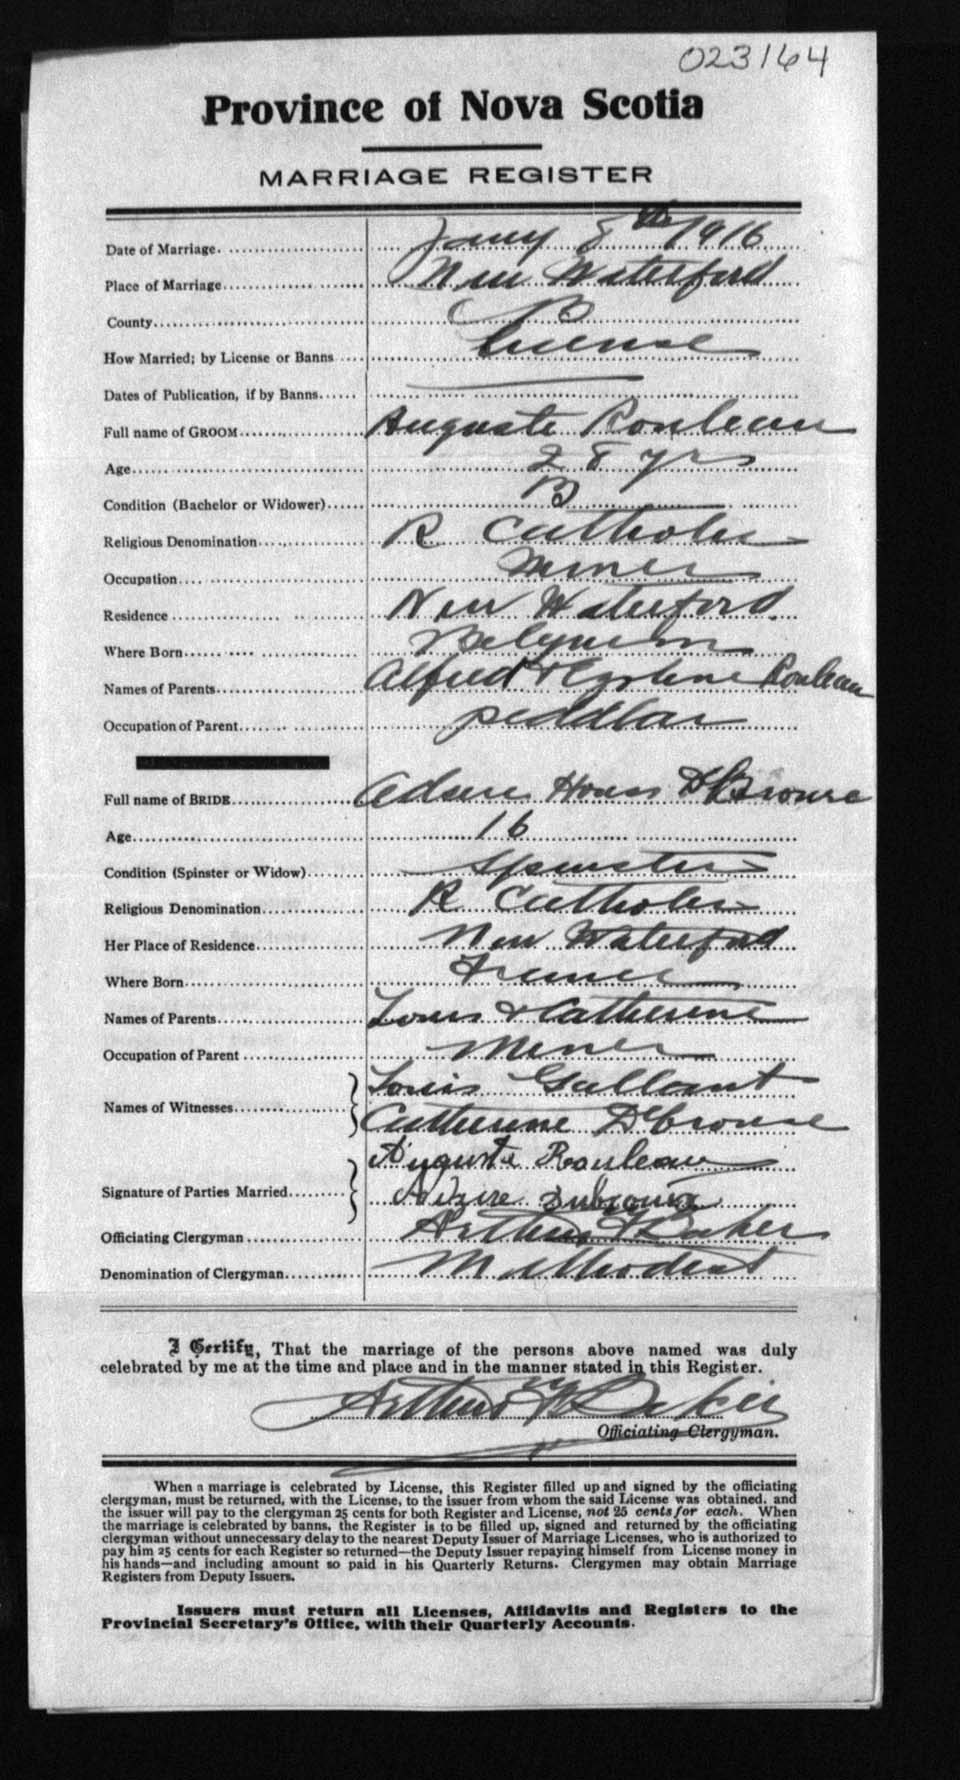 023164
Province of Nova Scotia
MARRIAGE REGISTER
Date of Marriage. Jany 8th 1916
Place of Marriage New Waterford
County C B
How Married; by License or Banns License
Dates of Publication, if by Banns
Full name of GROOM Auguste Rouleau
Age 28 yrs
Condition (Bachelor or Widower) B
Religious Denomination R Catholic
Occupation Miner
Residence New Waterford
Where Born Belgium
Names of Parents Alfred & Rouleau
Occupation of Parent peddlar
Full name of BRIDE
Age 16
Condition (Spinster or Widow) Spinster
Religious Denomination R Catholic
Her Place of Residence New Waterford
Where Born France
Names of Parents Louis & Catherine
Occupation of Parent Miner
Names of Witnesses Louis Gallant
Catherine DeBrouse
Signature of Parties Married Auguste Rouleau
Officiating Clergyman Arthur F Baker
Denomination of Clergyman Methodist
I Certify, That the marriage of the persons above named was duly
celebrated by me at the time and place and in the manner stated in this Register.
Arthur F Baker
Officiating Clergyman.
When a marriage is celebrated by License, this Register filled up and signed by the officiating
clergyman, must be returned, with the License, to the issuer from whom the said License was obtained, and
the issuer will pay to the clergyman 25 cents for both Register and License, not 25 cents for each. When
the marriage is celebrated by banns, the Register is to be filled up, signed and returned by the officiating
clergyman without unnecessary delay to the nearest Deputy Issuer of Marriage Licenses, who is authorized to
pay him 25 cents for each Register so returned—the Deputy Issuer repaying himself from License money in
his hands—and including amount so paid in his Quarterly Returns. Clergymen may obtain Marriage
Registers from Deputy Issuers.
Issuers must return all Licenses, Affidavits and Registers to the
Provincial Secretary's Office, with their Quarterly Accounts.